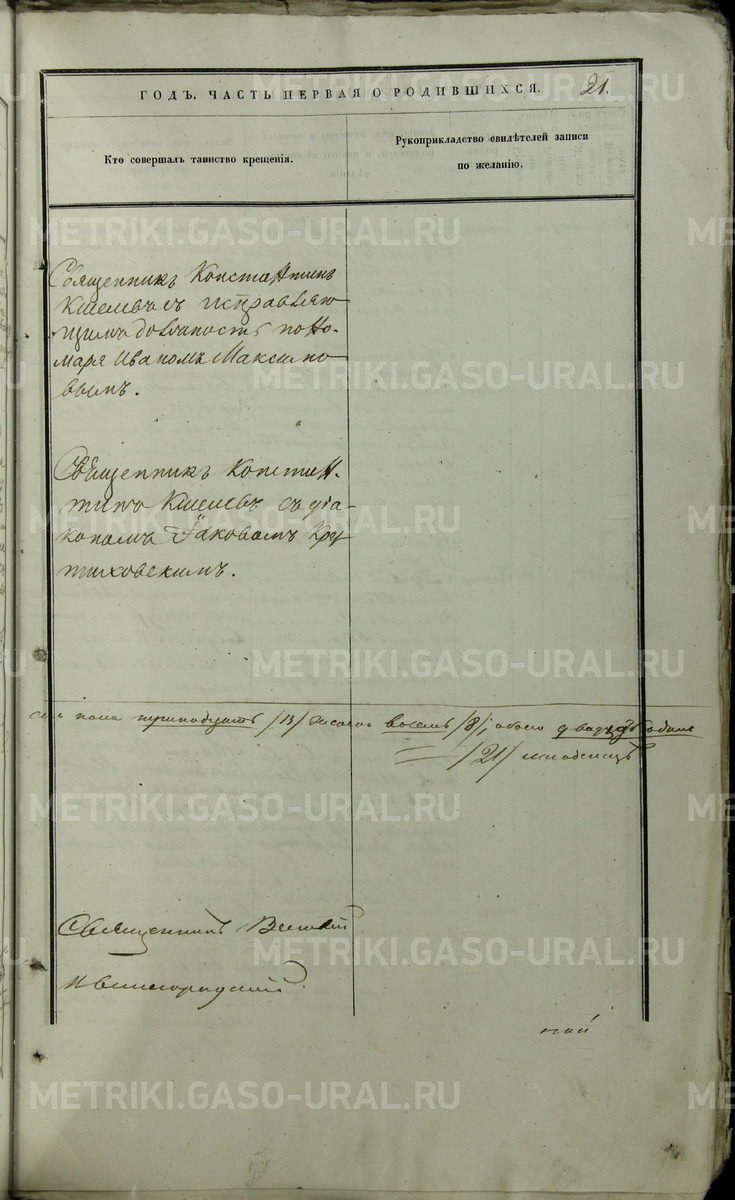 ГОДЪ, ЧАСТЬ ПЕРВАЯ О РОДИВШИХСЯ.
21.
Кто совершалъ таинство крещенія.
Рукоприкладство свидѣтелей записи
по желанію.
Священникъ Константинъ
Киселевъ съ исправляю-
щимъ должность поно-
маря Иваномъ Максимо-
вымъ.
Священникъ Констан-
тинъ Киселевъ съ діа-
кономъ Іаковомъ Кру-
тиховскимъ.
пола тринадцать /13/ женска восемь /8/, обоего двадцать одинъ
/21/ младенецъ
Священникъ Василій
METRIKI.GASO-URAL.RU